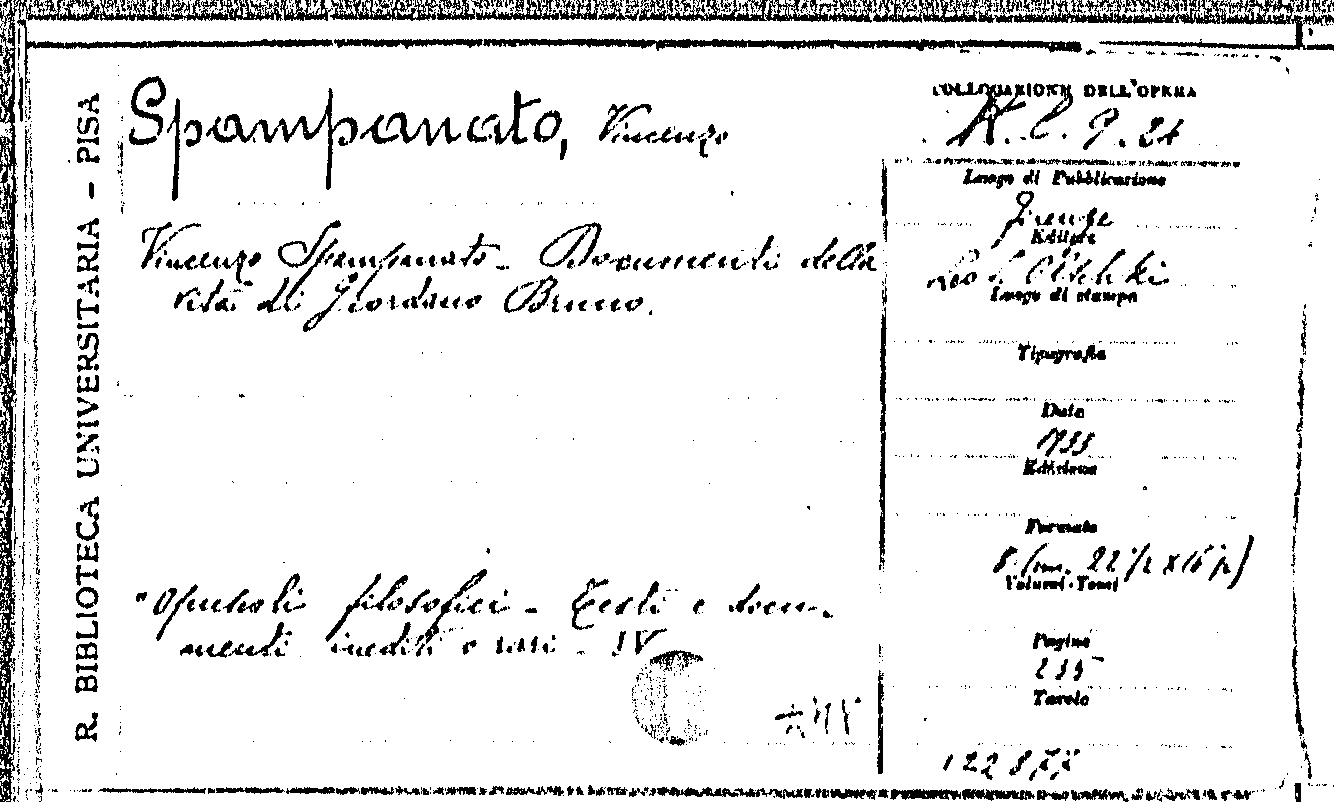 R. BIBLIOTECA UNIVERSITARIA - PISA
Spampanato, Vincenzo
Vincenzo Spampanato - Documenti della
vita di Giordano Bruno.
"Opuscoli filosofici - Testi e docu-
menti inediti o rari - IV
COLLOCAZIONE DELL'OPERA
H. l. 9. 24
Luogo di Pubblicazione
Firenze
Editore
Leo S. Olschki
Luogo di stampa
Tipografia
Data
1933
Edizione
Formato
8. (cm. 22 1/2 x 16 1/2)
Volumi-Tomi
Pagine
235
Tavole